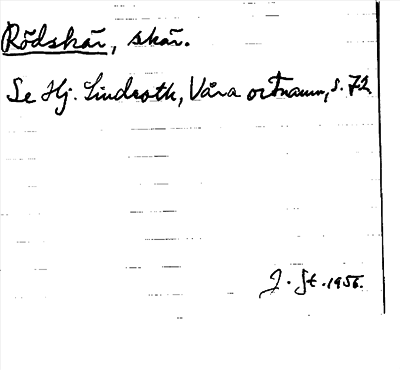 Rödskär, skär.
Se Hj. Lindroth, Våra ortnamn, s. 72
J. St. 1956.